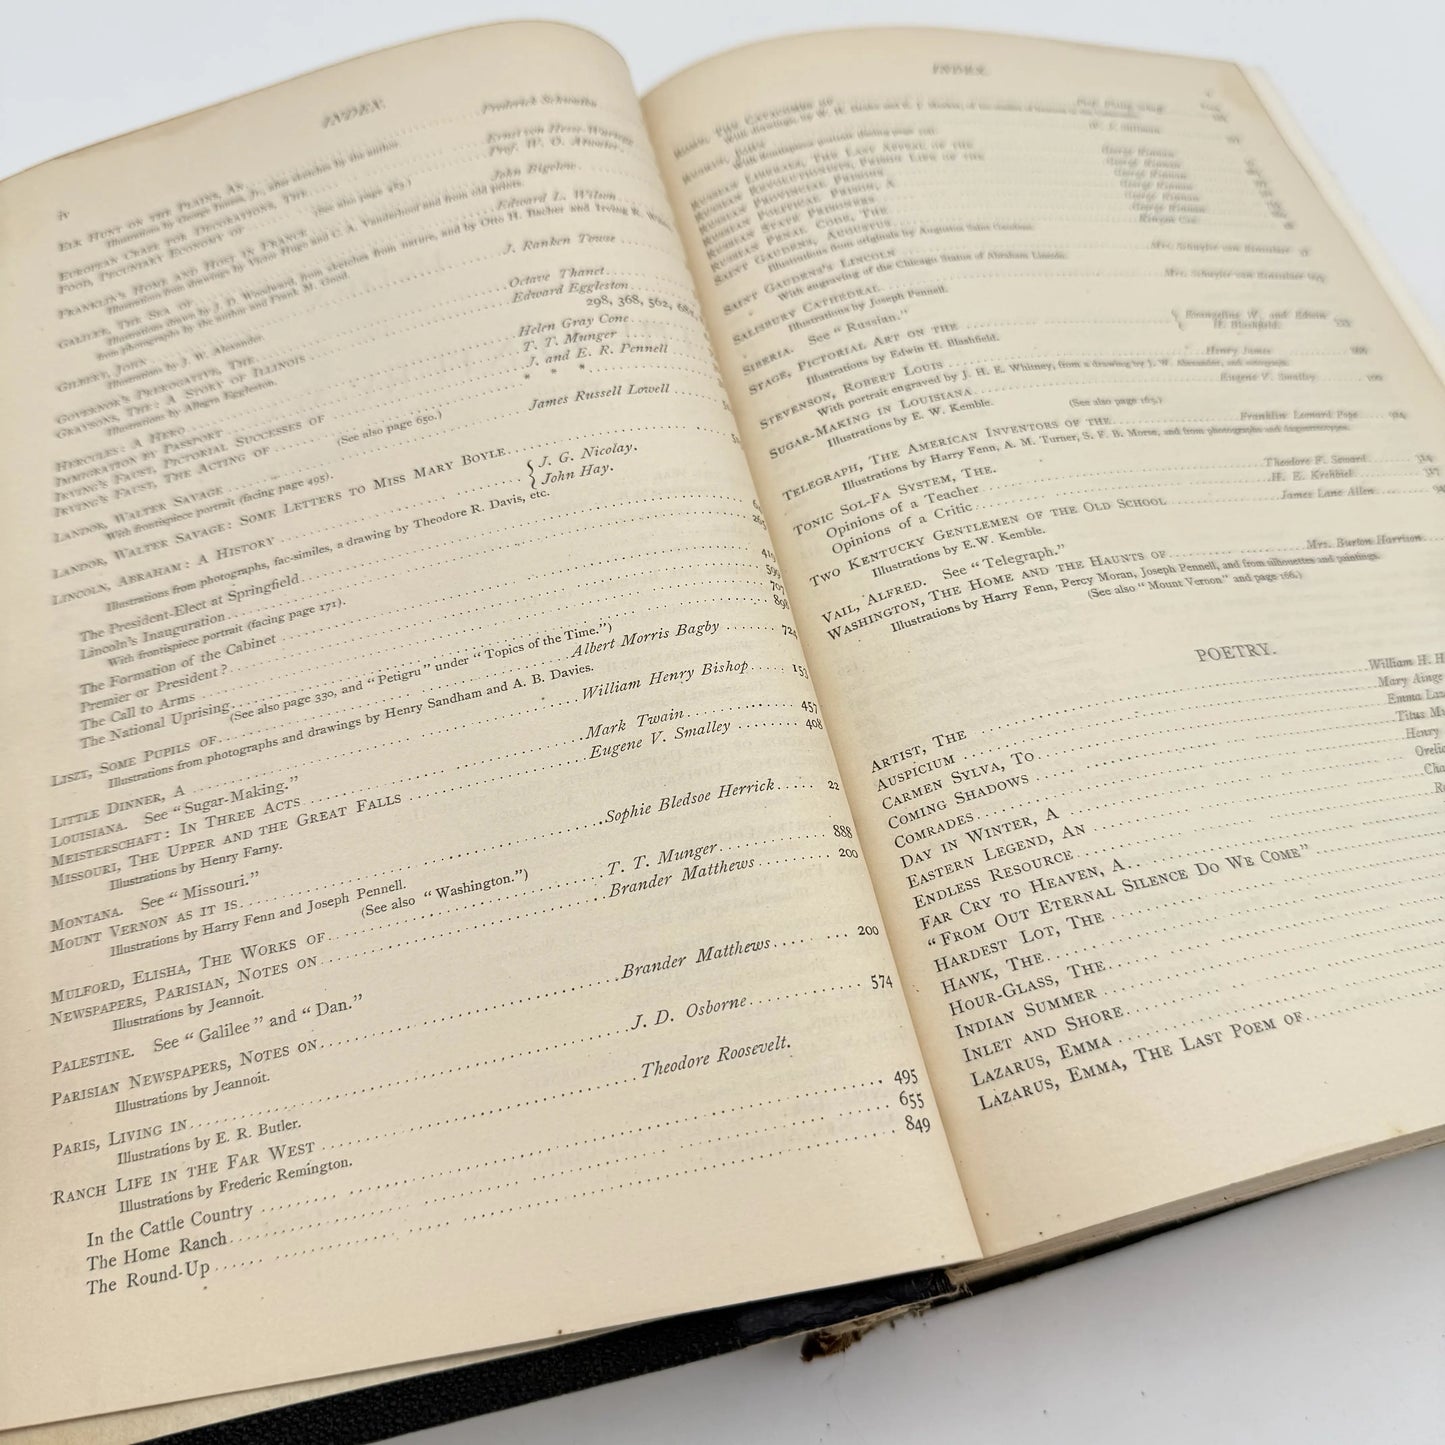 INDEX.
iv
Frederick Schwatka
ELK HUNT ON THE PLAINS, AN
Illustrations by George Inness, Jr., after sketches by the author.
Ernst von Hesse-Wartegg
EUROPEAN CRAZE FOR DECORATIONS, THE
Prof. W. O. Atwater
FOOD, PECUNIARY ECONOMY OF
(See also page
John Bigelow
FRANKLIN'S HOME AND HOST IN FRANCE
Illustration from drawings by Victor Hugo and C. A. Vanderhoof and from old prints.
Edward L. Wilson
GALILEE, THE SEA OF
Illustrations drawn by J. D. Woodward, from sketches from nature, and by Otto H. Bacher and Irving R. Wiles,
from photographs by the author and Frank M. Good.
GILBERT, JOHN J. Ranken Towse
Illustration by J. W. Alexander.
GOVERNOR'S PREROGATIVE, THE Octave Thanet
GRAYSONS, THE: A STORY OF ILLINOIS Edward Eggleston
Illustrations by Allegra Eggleston. 298, 368, 562,
HERCULES: A HERO Helen Gray Cone
IMMIGRATION BY PASSPORT T. T. Munger
IRVING'S FAUST, PICTORIAL SUCCESSES OF J. and E. R. Pennell
IRVING'S FAUST, THE ACTING OF * * *
(See also page 650.)
LANDOR, WALTER SAVAGE James Russell Lowell
With frontispiece portrait (facing page 495).
LANDOR, WALTER SAVAGE: SOME LETTERS TO MISS MARY BOYLE
LINCOLN, ABRAHAM: A HISTORY { J. G. Nicolay. John Hay.
Illustrations from photographs, fac-similes, a drawing by Theodore R. Davis, etc.
The President-Elect at Springfield
Lincoln's Inauguration 265
With frontispiece portrait (facing page 171).
The Formation of the Cabinet 419
Premier or President? 599
The Call to Arms 707
The National Uprising 898
(See also page 330, and "Petigru" under "Topics of the Time.")
LISZT, SOME PUPILS OF Albert Morris Bagby 724
Illustrations from photographs and drawings by Henry Sandham and A. B. Davies.
LITTLE DINNER, A William Henry Bishop 153
LOUISIANA. See "Sugar-Making."
MEISTERSCHAFT: IN THREE ACTS Mark Twain 457
MISSOURI, THE UPPER AND THE GREAT FALLS Eugene V. Smalley 408
Illustrations by Henry Farny.
MONTANA. See "Missouri."
MOUNT VERNON AS IT IS Sophie Bledsoe Herrick 22
Illustrations by Harry Fenn and Joseph Pennell.
(See also "Washington.")
MULFORD, ELISHA, THE WORKS OF T. T. Munger 888
NEWSPAPERS, PARISIAN, NOTES ON Brander Matthews 200
Illustrations by Jeannoit.
PALESTINE. See "Galilee" and "Dan."
PARISIAN NEWSPAPERS, NOTES ON Brander Matthews 200
Illustrations by Jeannoit.
PARIS, LIVING IN J. D. Osborne 574
Illustrations by E. R. Butler.
RANCH LIFE IN THE FAR WEST Theodore Roosevelt.
Illustrations by Frederic Remington.
In the Cattle Country 495
The Home Ranch 655
The Round-Up 849
INDEX.
v
ROME, THE CATACOMBS OF
RUSKIN, JOHN W. J. Stillman
RUSSIAN LIBERALS, THE LAST APPEAL OF THE George Kennan
RUSSIAN REVOLUTIONISTS, PRISON LIFE OF THE George Kennan
RUSSIAN PROVINCIAL PRISONS George Kennan
RUSSIAN POLITICAL PRISON, A George Kennan
RUSSIAN STATE PRISONERS George Kennan
RUSSIAN PENAL CODE, THE George Kennan
SAINT GAUDENS, AUGUSTUS Kenyon Cox
Illustrations from originals by Augustus Saint Gaudens.
SAINT GAUDENS'S LINCOLN Mrs. Schuyler van Rensselaer
With engraving of the Chicago Statue of Abraham Lincoln.
SALISBURY CATHEDRAL Mrs. Schuyler van Rensselaer
Illustrations by Joseph Pennell.
SIBERIA. See "Russian."
STAGE, PICTORIAL ART ON THE { Evangeline W. and Edwin H. Blashfield.
Illustrations by Edwin H. Blashfield.
STEVENSON, ROBERT LOUIS Henry James
With portrait engraved by J. H. E. Whitney, from a drawing by J. W. Alexander, and autograph.
SUGAR-MAKING IN LOUISIANA Eugene V. Smalley
Illustrations by E. W. Kemble. (See also page 165.)
TELEGRAPH, THE AMERICAN INVENTORS OF THE Franklin Leonard Pope
Illustrations by Harry Fenn, A. M. Turner, S. F. B. Morse, and from photographs and daguerreotypes.
TONIC SOL-FA SYSTEM, THE.
Opinions of a Teacher Theodore F. Seward
Opinions of a Critic H. E. Krehbiel
TWO KENTUCKY GENTLEMEN OF THE OLD SCHOOL James Lane Allen
Illustrations by E.W. Kemble.
VAIL, ALFRED. See "Telegraph."
WASHINGTON, THE HOME AND THE HAUNTS OF Mrs. Burton Harrison
Illustrations by Harry Fenn, Percy Moran, Joseph Pennell, and from silhouettes and paintings.
(See also "Mount Vernon" and page 166.)
POETRY.
ARTIST, THE William H.
AUSPICIUM Mary Ainge
CARMEN SYLVA, TO Emma
COMING SHADOWS Titus
COMRADES Henry
DAY IN WINTER, A
EASTERN LEGEND, AN
ENDLESS RESOURCE
FAR CRY TO HEAVEN, A
"FROM OUT ETERNAL SILENCE DO WE COME"
HARDEST LOT, THE
HAWK, THE
HOUR-GLASS, THE
INDIAN SUMMER
INLET AND SHORE
LAZARUS, EMMA
LAZARUS, EMMA, THE LAST POEM OF